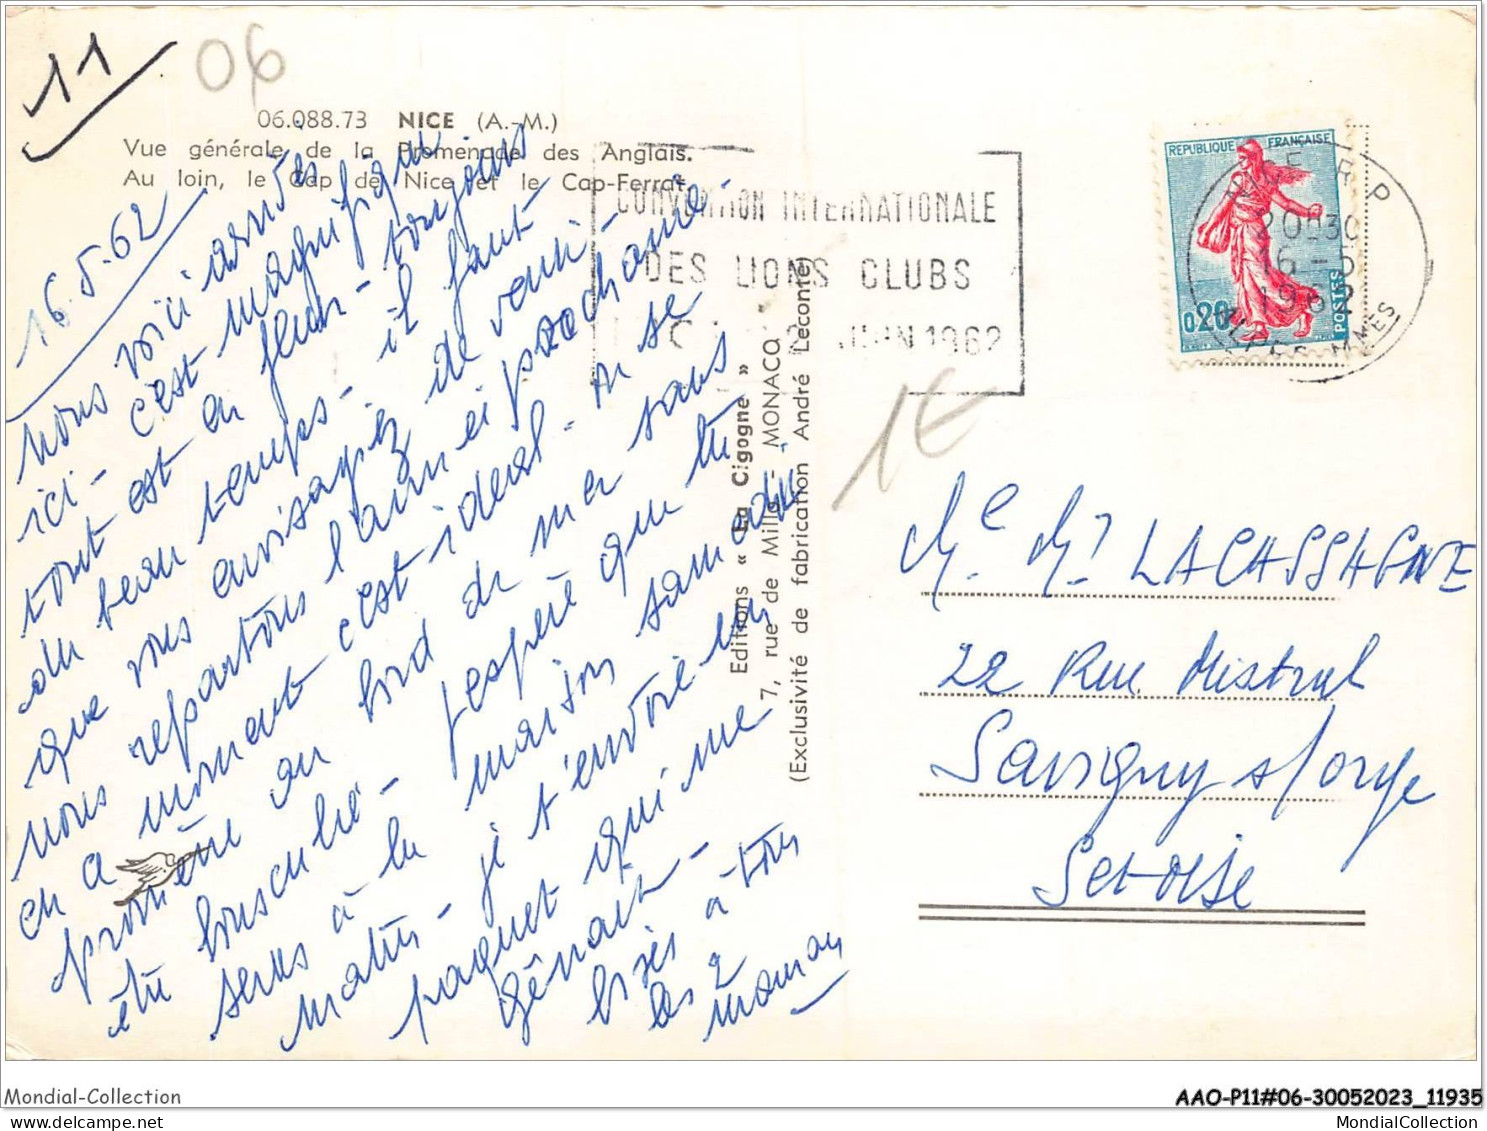 11
06
06.088.73 NICE (A.-M.)
Vue générale de la Promenade des Anglais.
Au loin, le Cap de Nice et le Cap-Ferrat.
16.5.62
nous voici arrivés
ici - c'est magnifique
tout est en fleur - toujours
du beau temps - il faut
que vous envisagiez de venir -
nous repartons l'année prochaine -
en a moment c'est idéal - on se
promène au bord de mer sans
être bousculé - j'espère que tu
seras à la maison samedi
matin - je t'envoie un
paquet qui me
gênait -
bises à tous
les 2
maman
CONVENTION INTERNATIONALE
DES LIONS CLUBS
JUIN 1962
REPUBLIQUE FRANÇAISE
0,20
POSTES
NICE R.P
20H30
16-5
1962
ALPES-MMES
1€
Editions « La Cigogne »
7, rue de Millo - MONACO
(Exclusivité de fabrication André Leconte)
Me. Mr LACASSAGNE
22 Rue Mistral
Savigny s/orge
Set-Oise
Mondial-Collection
AAO-P11#06-30052023_11935
www.delcampe.net
MondialCollection